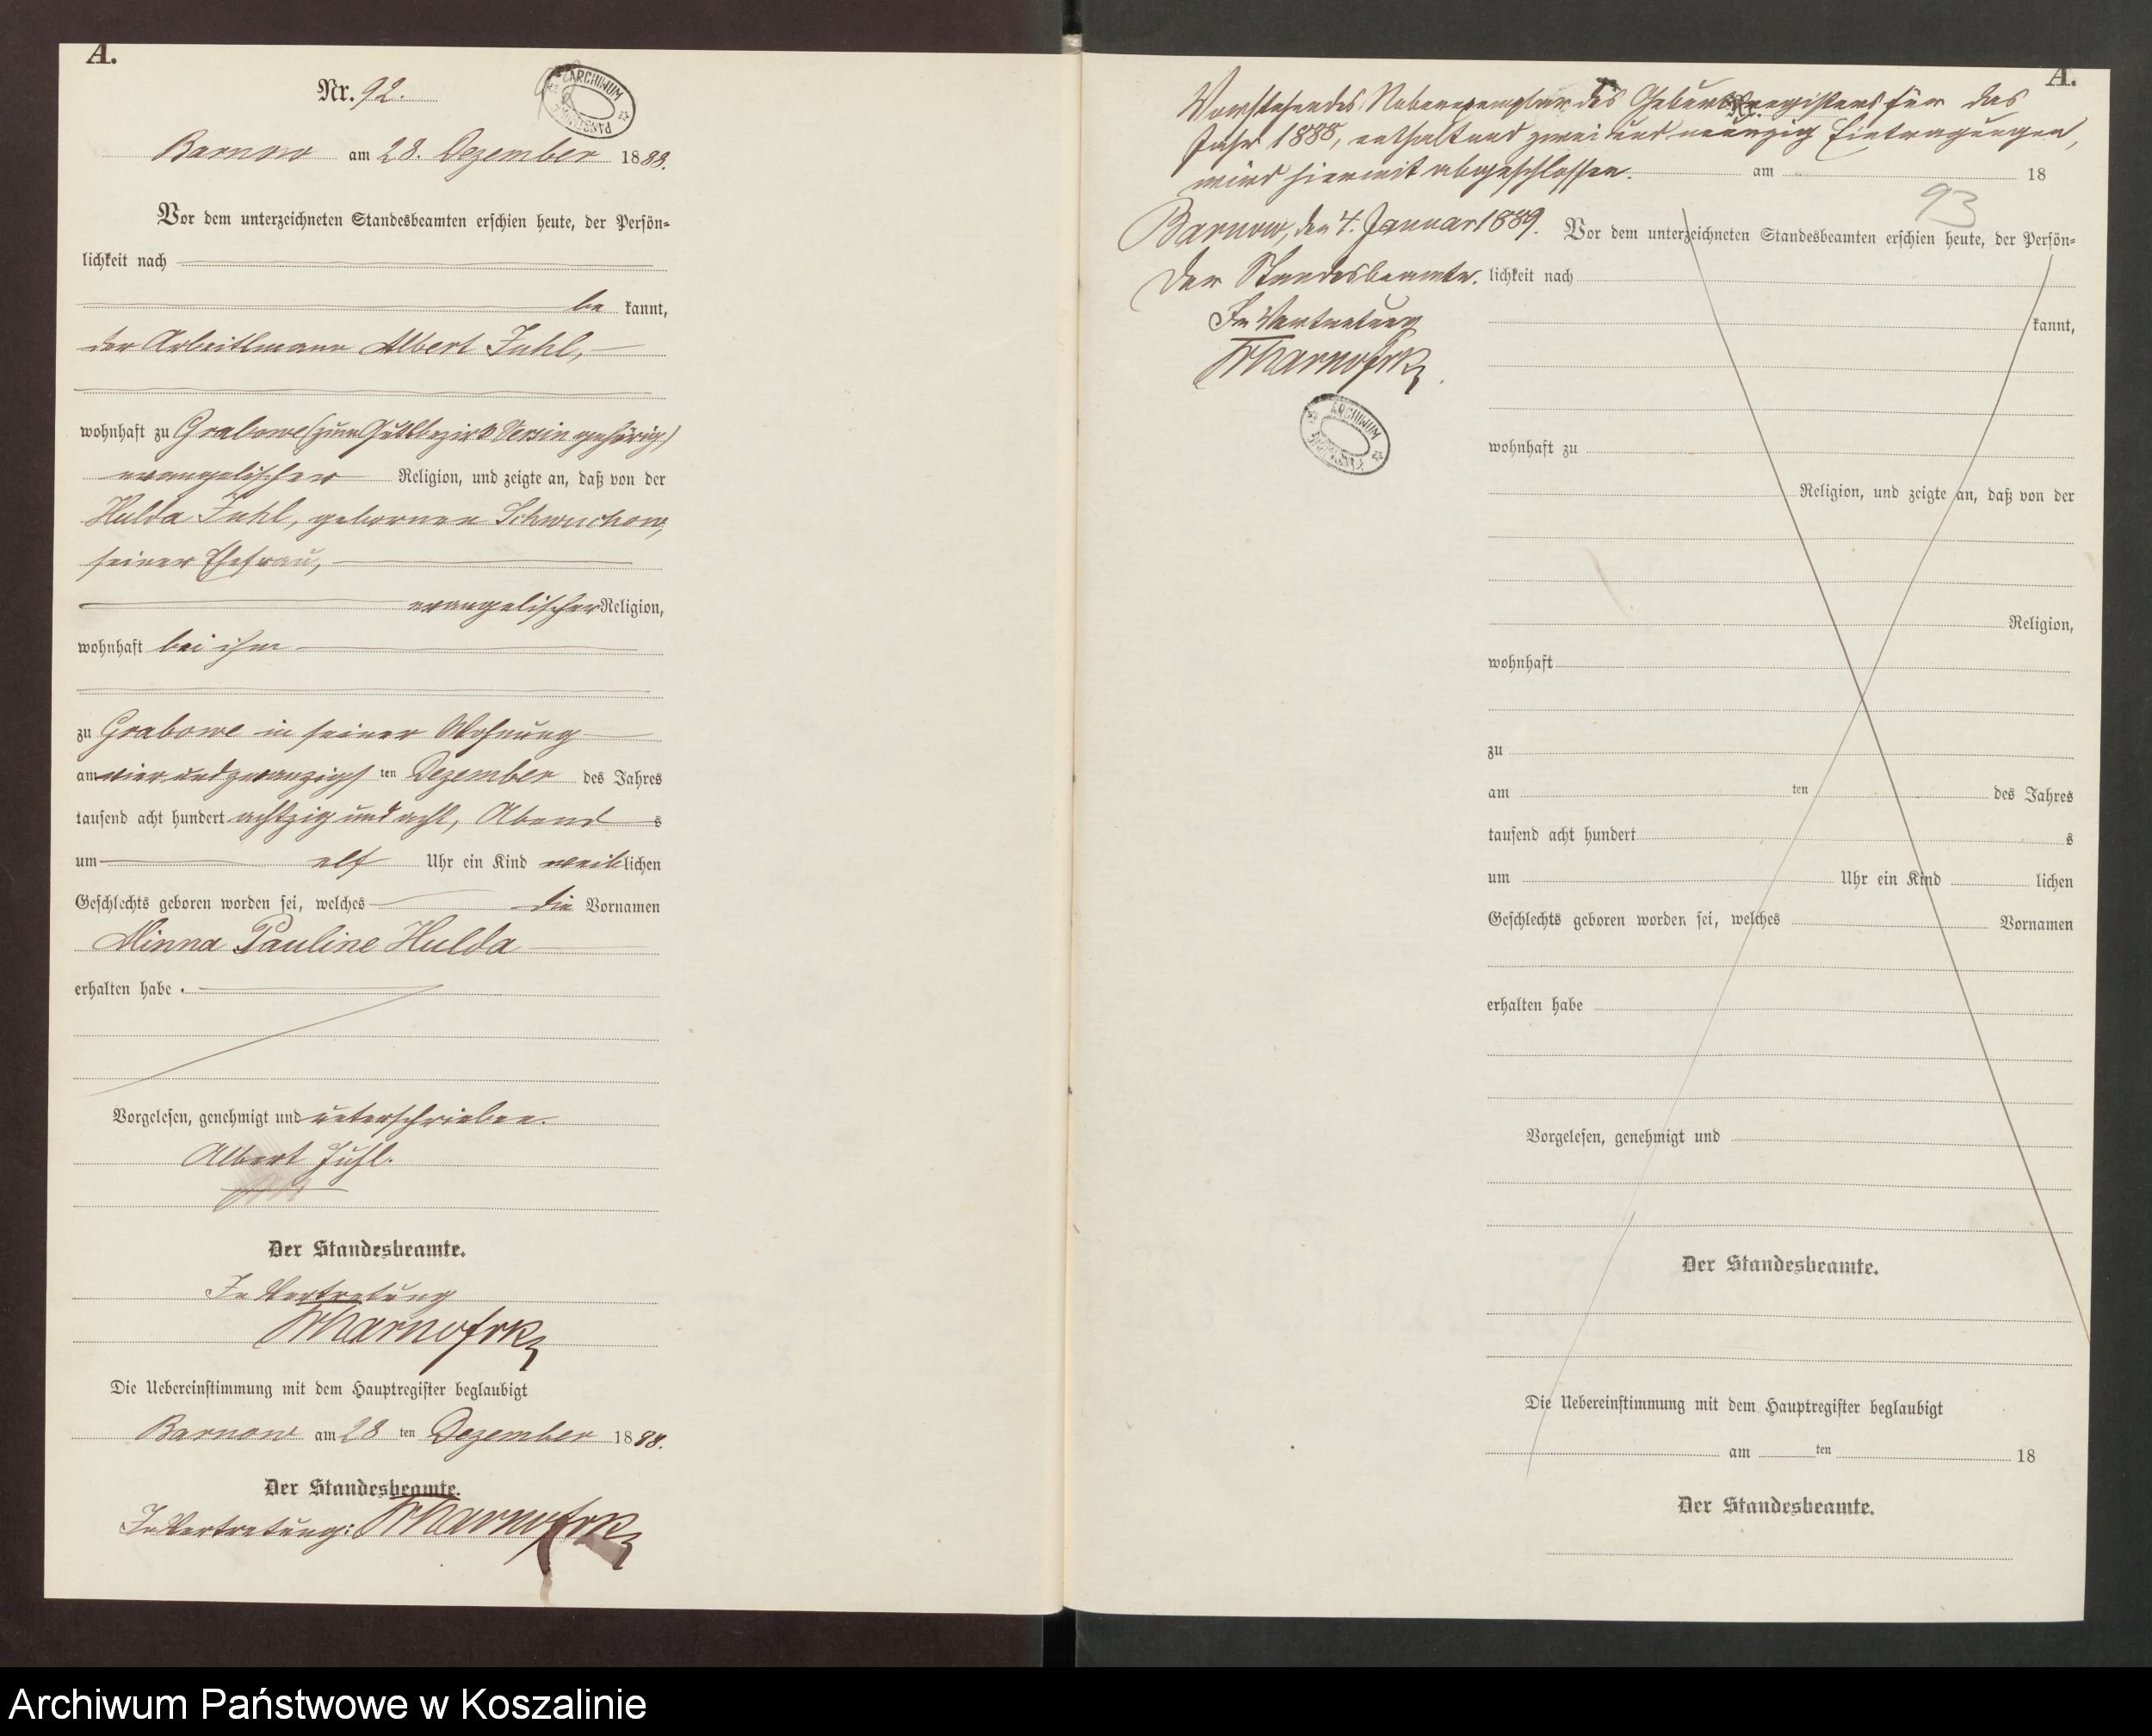 A.
Nr. 92.
ARCHIWUM PAŃSTWOWE
Barnow am 28. Dezember 1888.
Vor dem unterzeichneten Standesbeamten erschien heute, der Persön-
lichkeit nach
be kannt,
der Arbeitsmann Albert Juhl,
wohnhaft zu Grabowe (zum Gutsbezirk Versin gehörig)
evangelischer Religion, und zeigte an, daß von der
Hulda Juhl, gebornen Schwuchow,
seiner Ehefrau,
evangelischer Religion,
wohnhaft bei ihm
zu Grabowe in seiner Wohnung
am vier und zwanzigs ten Dezember des Jahres
tausend acht hundert achtzig und acht, Abend s
um elf Uhr ein Kind weib lichen
Geschlechts geboren worden sei, welches die Vornamen
Minna Pauline Hulda
erhalten habe.
Vorgelesen, genehmigt und unterschrieben.
Albert Juhl.
Der Standesbeamte.
In Vertretung
Die Uebereinstimmung mit dem Hauptregister beglaubigt
Barnow am 28 ten Dezember 1888.
Der Standesbeamte.
In Vertretung:
A.
Vorstehendes Nebenexemplar des Geburtsregisters für das
Jahr 1888, enthaltend zwei und neunzig Eintragungen,
wird hiermit abgeschlossen. am 18
93
Barnow, den 4. Januar 1889.
Der Standesbeamte.
In Vertretung
ARCHIWUM
Vor dem unterzeichneten Standesbeamten erschien heute, der Persön-
lichkeit nach
kannt,
wohnhaft zu
Religion, und zeigte an, daß von der
Religion,
wohnhaft
zu
am ten des Jahres
tausend acht hundert s
um Uhr ein Kind lichen
Geschlechts geboren worden sei, welches Vornamen
erhalten habe
Vorgelesen, genehmigt und
Der Standesbeamte.
Die Uebereinstimmung mit dem Hauptregister beglaubigt
am ten 18
Der Standesbeamte.
Archiwum Państwowe w Koszalinie